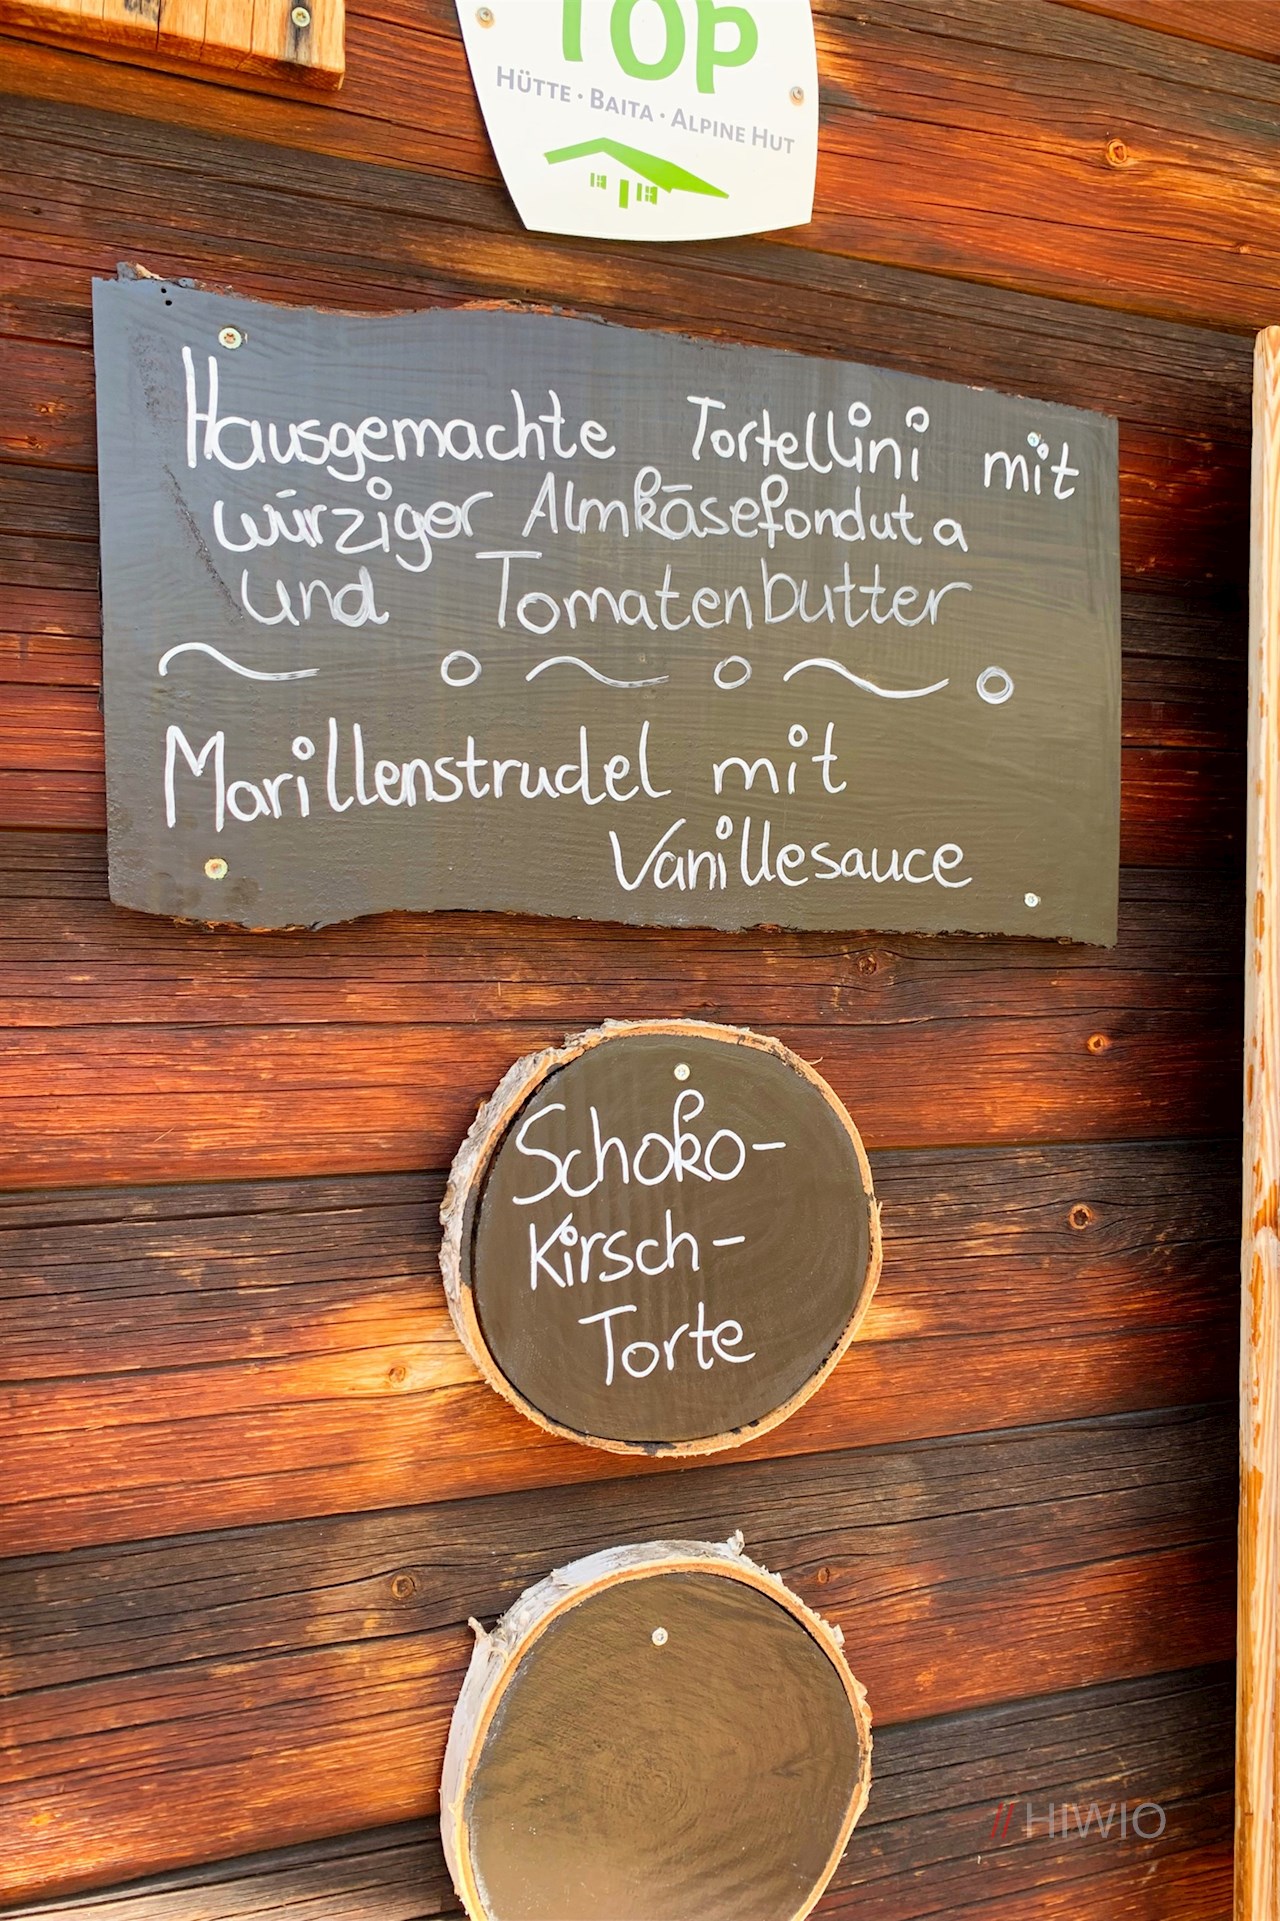 TOP
HÜTTE · BAITA · ALPINE HUT
Hausgemachte Tortellini mit
würziger Almkäsefonduta
und Tomatenbutter
Marillenstrudel mit
Vanillesauce
Schoko-
Kirsch-
Torte
//HIWIO